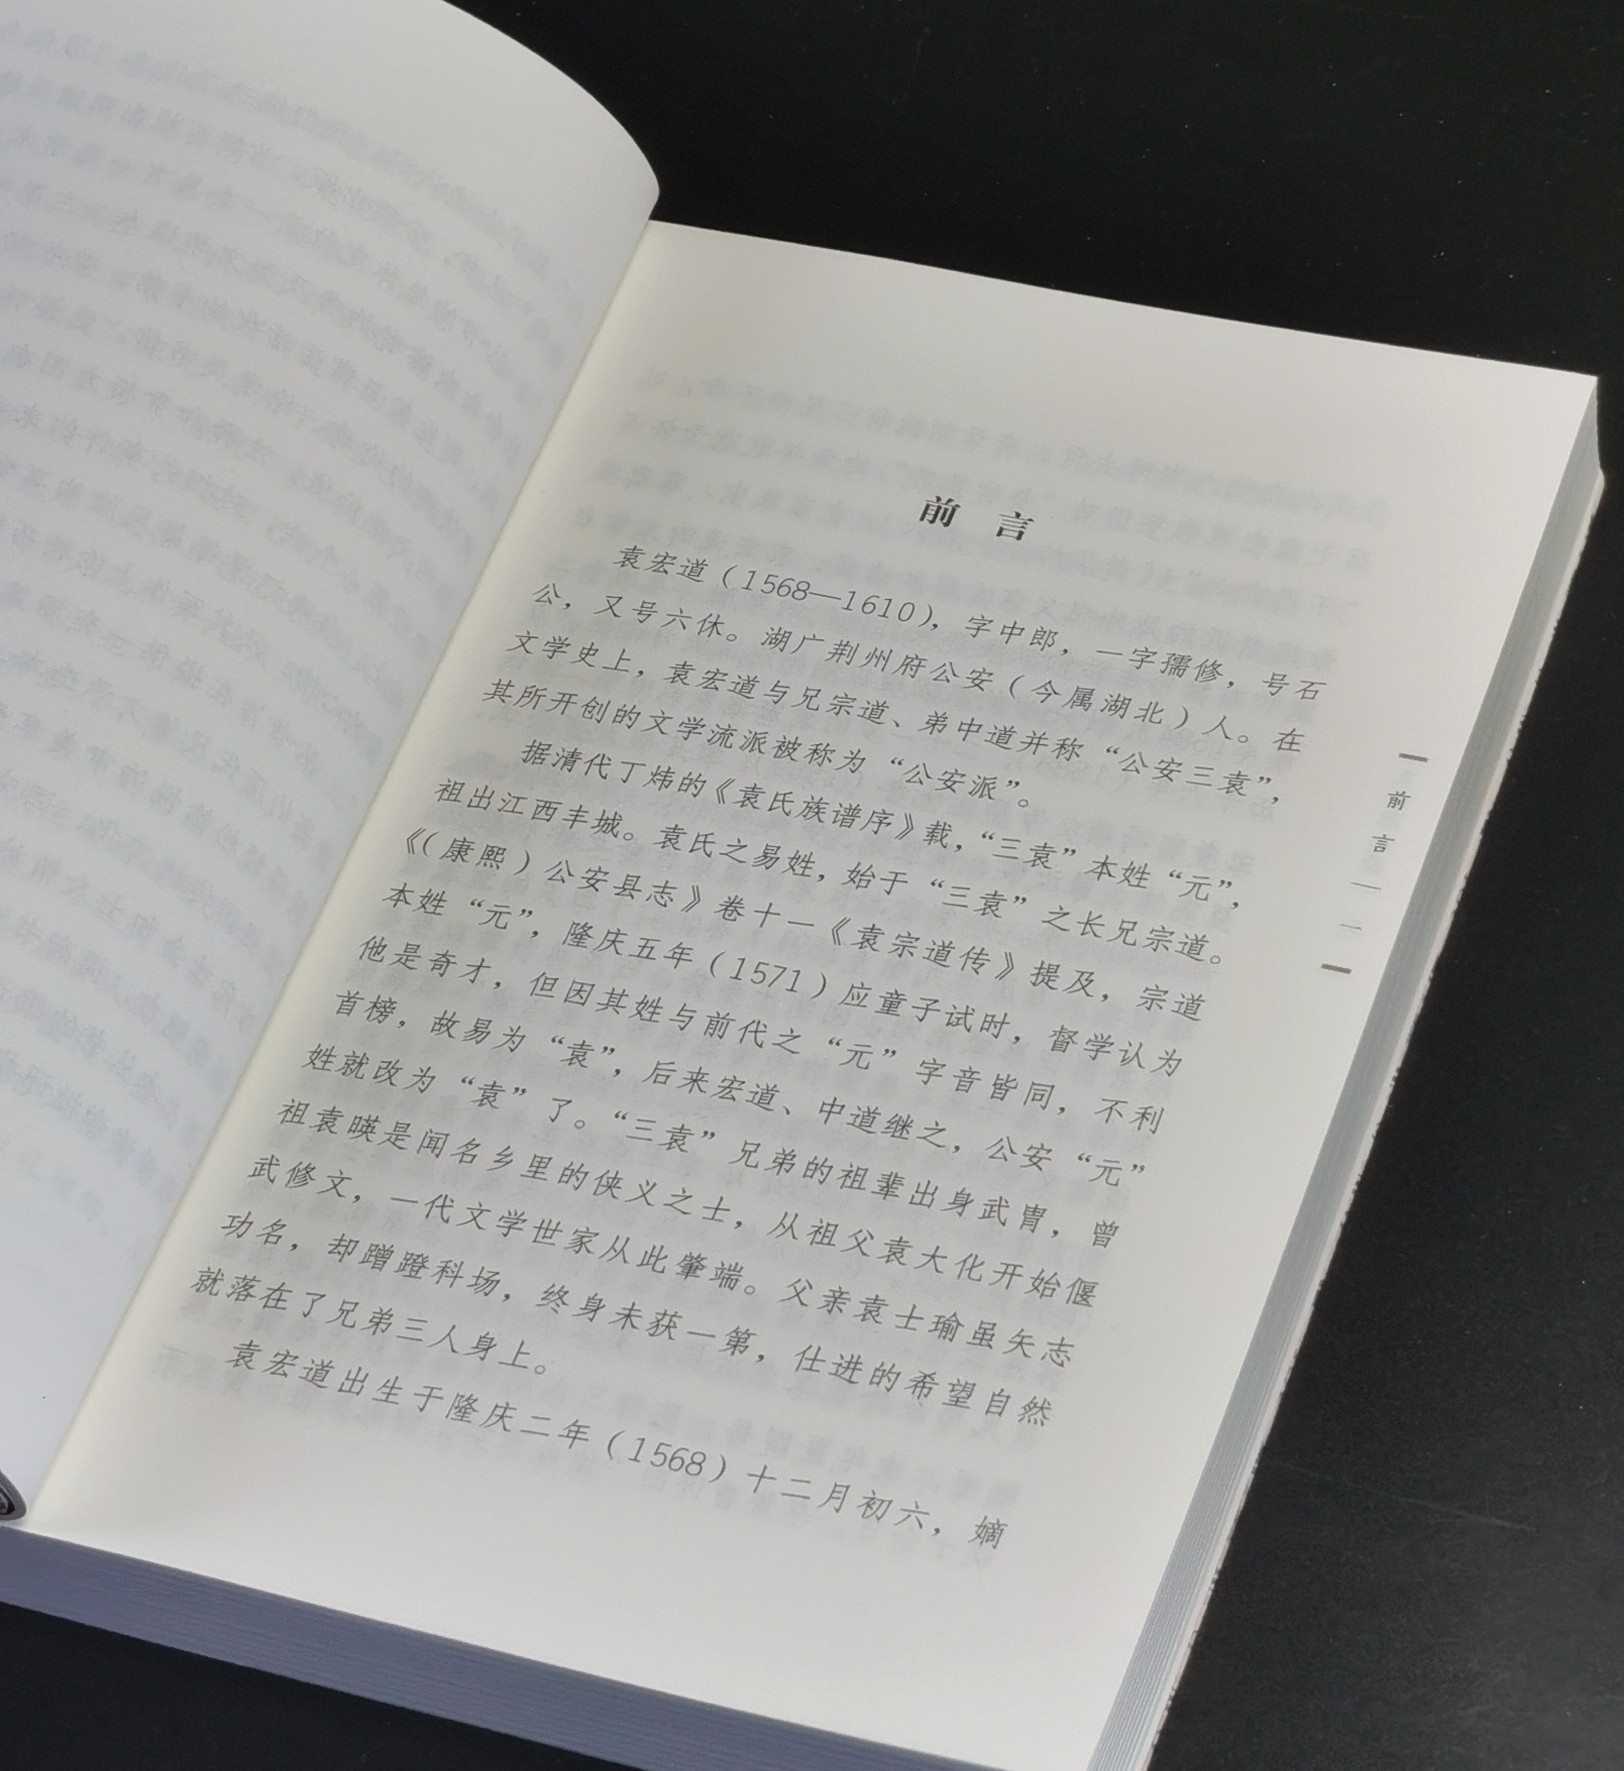 前言
袁宏道(1568—1610)，字中郎，一字孺修，号石
公，又号六休。湖广荆州府公安(今属湖北)人。在
文学史上，袁宏道与兄宗道、弟中道并称“公安三袁”，
其所开创的文学流派被称为“公安派”。
据清代丁炜的《袁氏族谱序》载，“三袁”本姓“元”，
祖出江西丰城。袁氏之易姓，始于“三袁”之长兄宗道。
《(康熙)公安县志》卷十一《袁宗道传》提及，宗道
本姓“元”，隆庆五年(1571)应童子试时，督学认为
他是奇才，但因其姓与前代之“元”字音皆同，不利
首榜，故易为“袁”，后来宏道、中道继之，公安“元”
姓就改为“袁”了。“三袁”兄弟的祖辈出身武胄，曾
祖袁暎是闻名乡里的侠义之士，从祖父袁大化开始偃
武修文，一代文学世家从此肇端。父亲袁士瑜虽矢志
功名，却蹭蹬科场，终身未获一第，仕进的希望自然
就落在了兄弟三人身上。
袁宏道出生于隆庆二年(1568)十二月初六，嫡
前言
一